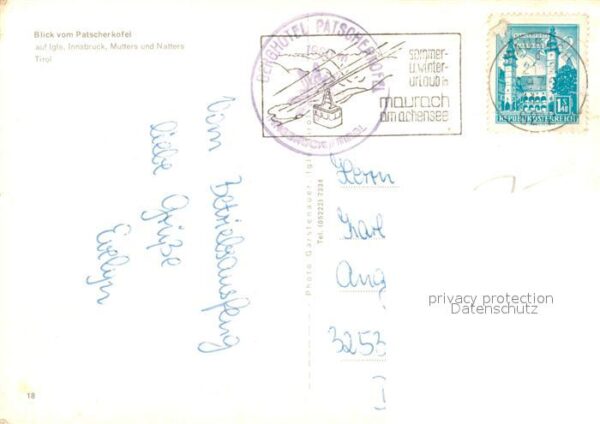 Blick vom Patscherkofel
auf Igls, Innsbruck, Mutters und Natters
Tirol
BERGHOTEL PATSCHERKOFEL
sommer-
u. winter-
urlaub in
maurach
am achensee
REPUBLIK ÖSTERREICH
Vom Betriebsausflug
liebe Grüße
Evelyn
Photo Gerstenauer, Igls
Tel. (05222) 7334
Herrn
Karl
Ang
3253
I
privacy protection
Datenschutz
18